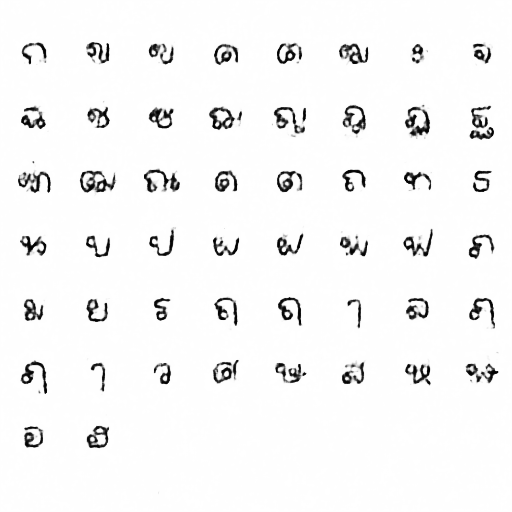 ก ข ฃ ค ฅ ฆ ะ จ
ฉ ช ซ ฌ ญ ฎ ฏ ฐ
ฑ ฒ ณ ด ต ถ ท ธ
น บ ป ผ ฝ พ ฟ ภ
ม ย ร ฤ ฤ ๅ ล ฦ
ฦ ๅ ว ศ ษ ส ห ฬ
อ ฮ